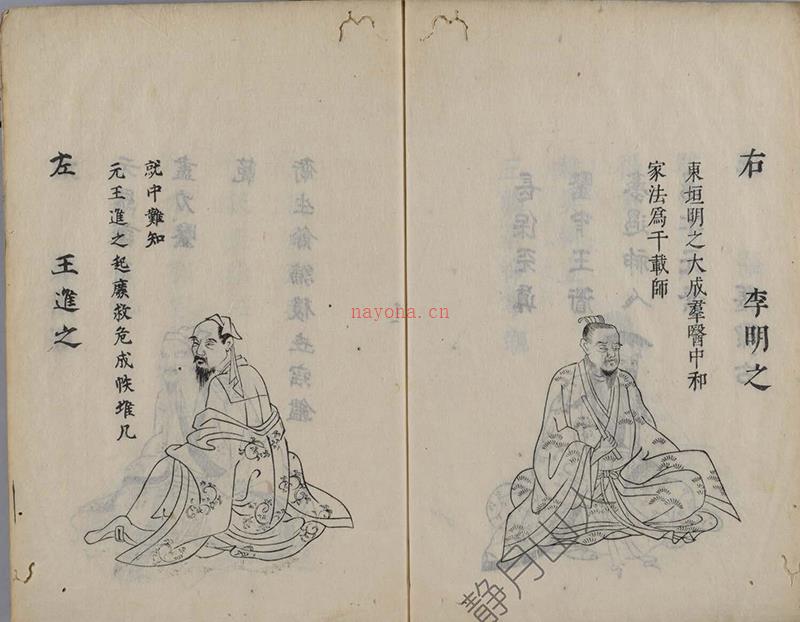 右 李明之
東垣明之大成羣醫中和
家法爲千載師
左 王進之
元王進之起廢救危成帙堆几
就中難知
nayona.cn
静月山